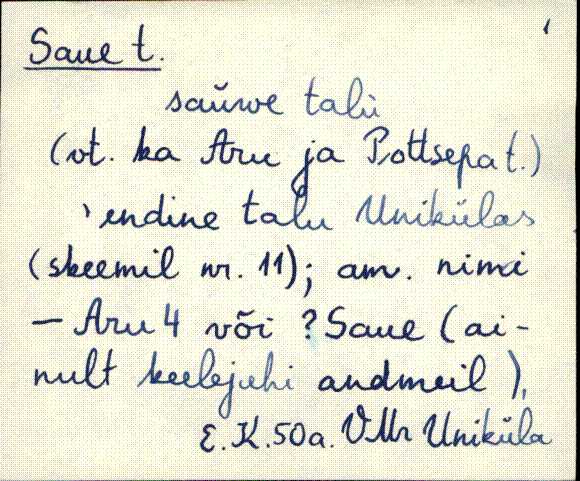 Saue t.
saŭwe talù
(vt. ka Aru ja Pottsepa t.)
'endine talu Unikülas
(skeemil nr. 11); am. nimi
– Aru 4 või ? Saue (ai-
nult keelejuhi andmeil).
E. K. 50 a. VMr Uniküla